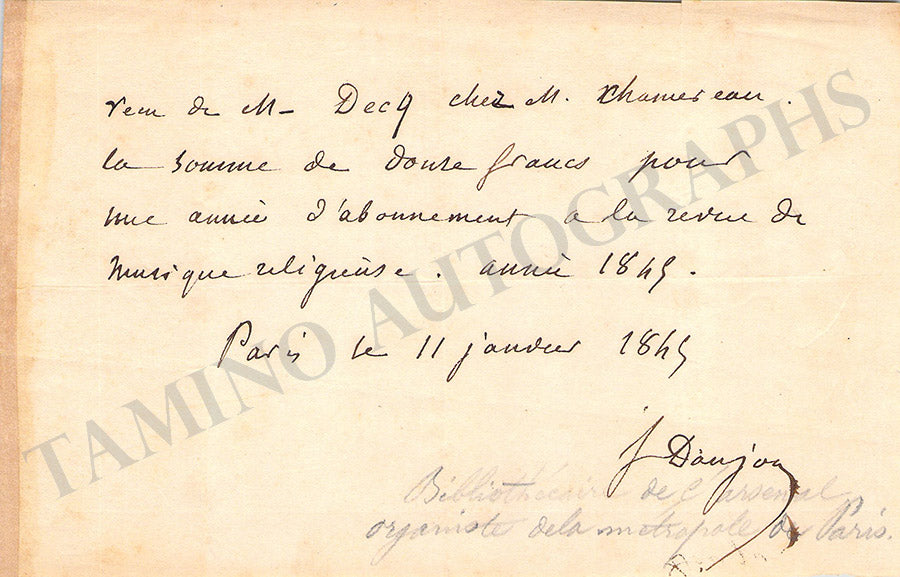 reçu de M- Decq chez M. Chamereau.
la somme de douze francs pour
une année d'abonnement a la revue de
musique religieuse. année 1845.
Paris le 11 janvier 1845
J Danjou
Bibliothécaire de l'arsenal
organiste de la métropole de Paris.
TAMINO AUTOGRAPHS